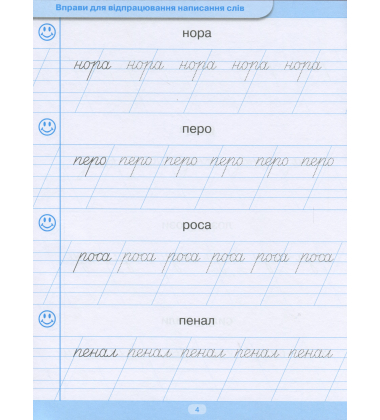 Вправи для відпрацювання написання слів
нора
нора нора нора нора нора
перо
перо перо перо перо перо перо
роса
роса роса роса роса роса роса
пенал
пенал пенал пенал пенал пенал
4